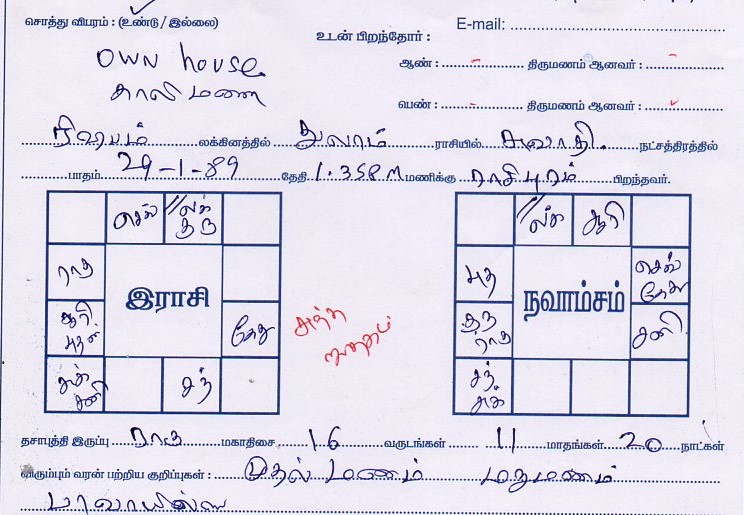 சொத்து விபரம் : (உண்டு / இல்லை)
E-mail:
உடன் பிறந்தோர் :
own house
ஆண் : - திருமணம் ஆனவர் : -
காலி மணை
பெண் : - திருமணம் ஆனவர் :
ரிஷபம் லக்கினத்தில் துலாம் ராசியில் சுவாதி நட்சத்திரத்தில்
பாதம் 29-1-89 தேதி 1.35 PM மணிக்கு ராசிபுரம் பிறந்தவர்.
செவ் //லக் குரு
//லக் சூரி
ராகு
புத செவ் கேது
இராசி
நவாம்சம்
சூரி புதன் கேது
குரு ராகு சனி
சுக் சனி சந்
சந் சுக்
சுத்த
தசாபுத்தி இருப்பு ராகு மகாதிசை, 16 வருடங்கள் 11 மாதங்கள் 20 நாட்கள்
விரும்பும் வரன் பற்றிய குறிப்புகள் : முதல் மணம் மறுமணம்
பரவாயில்லை